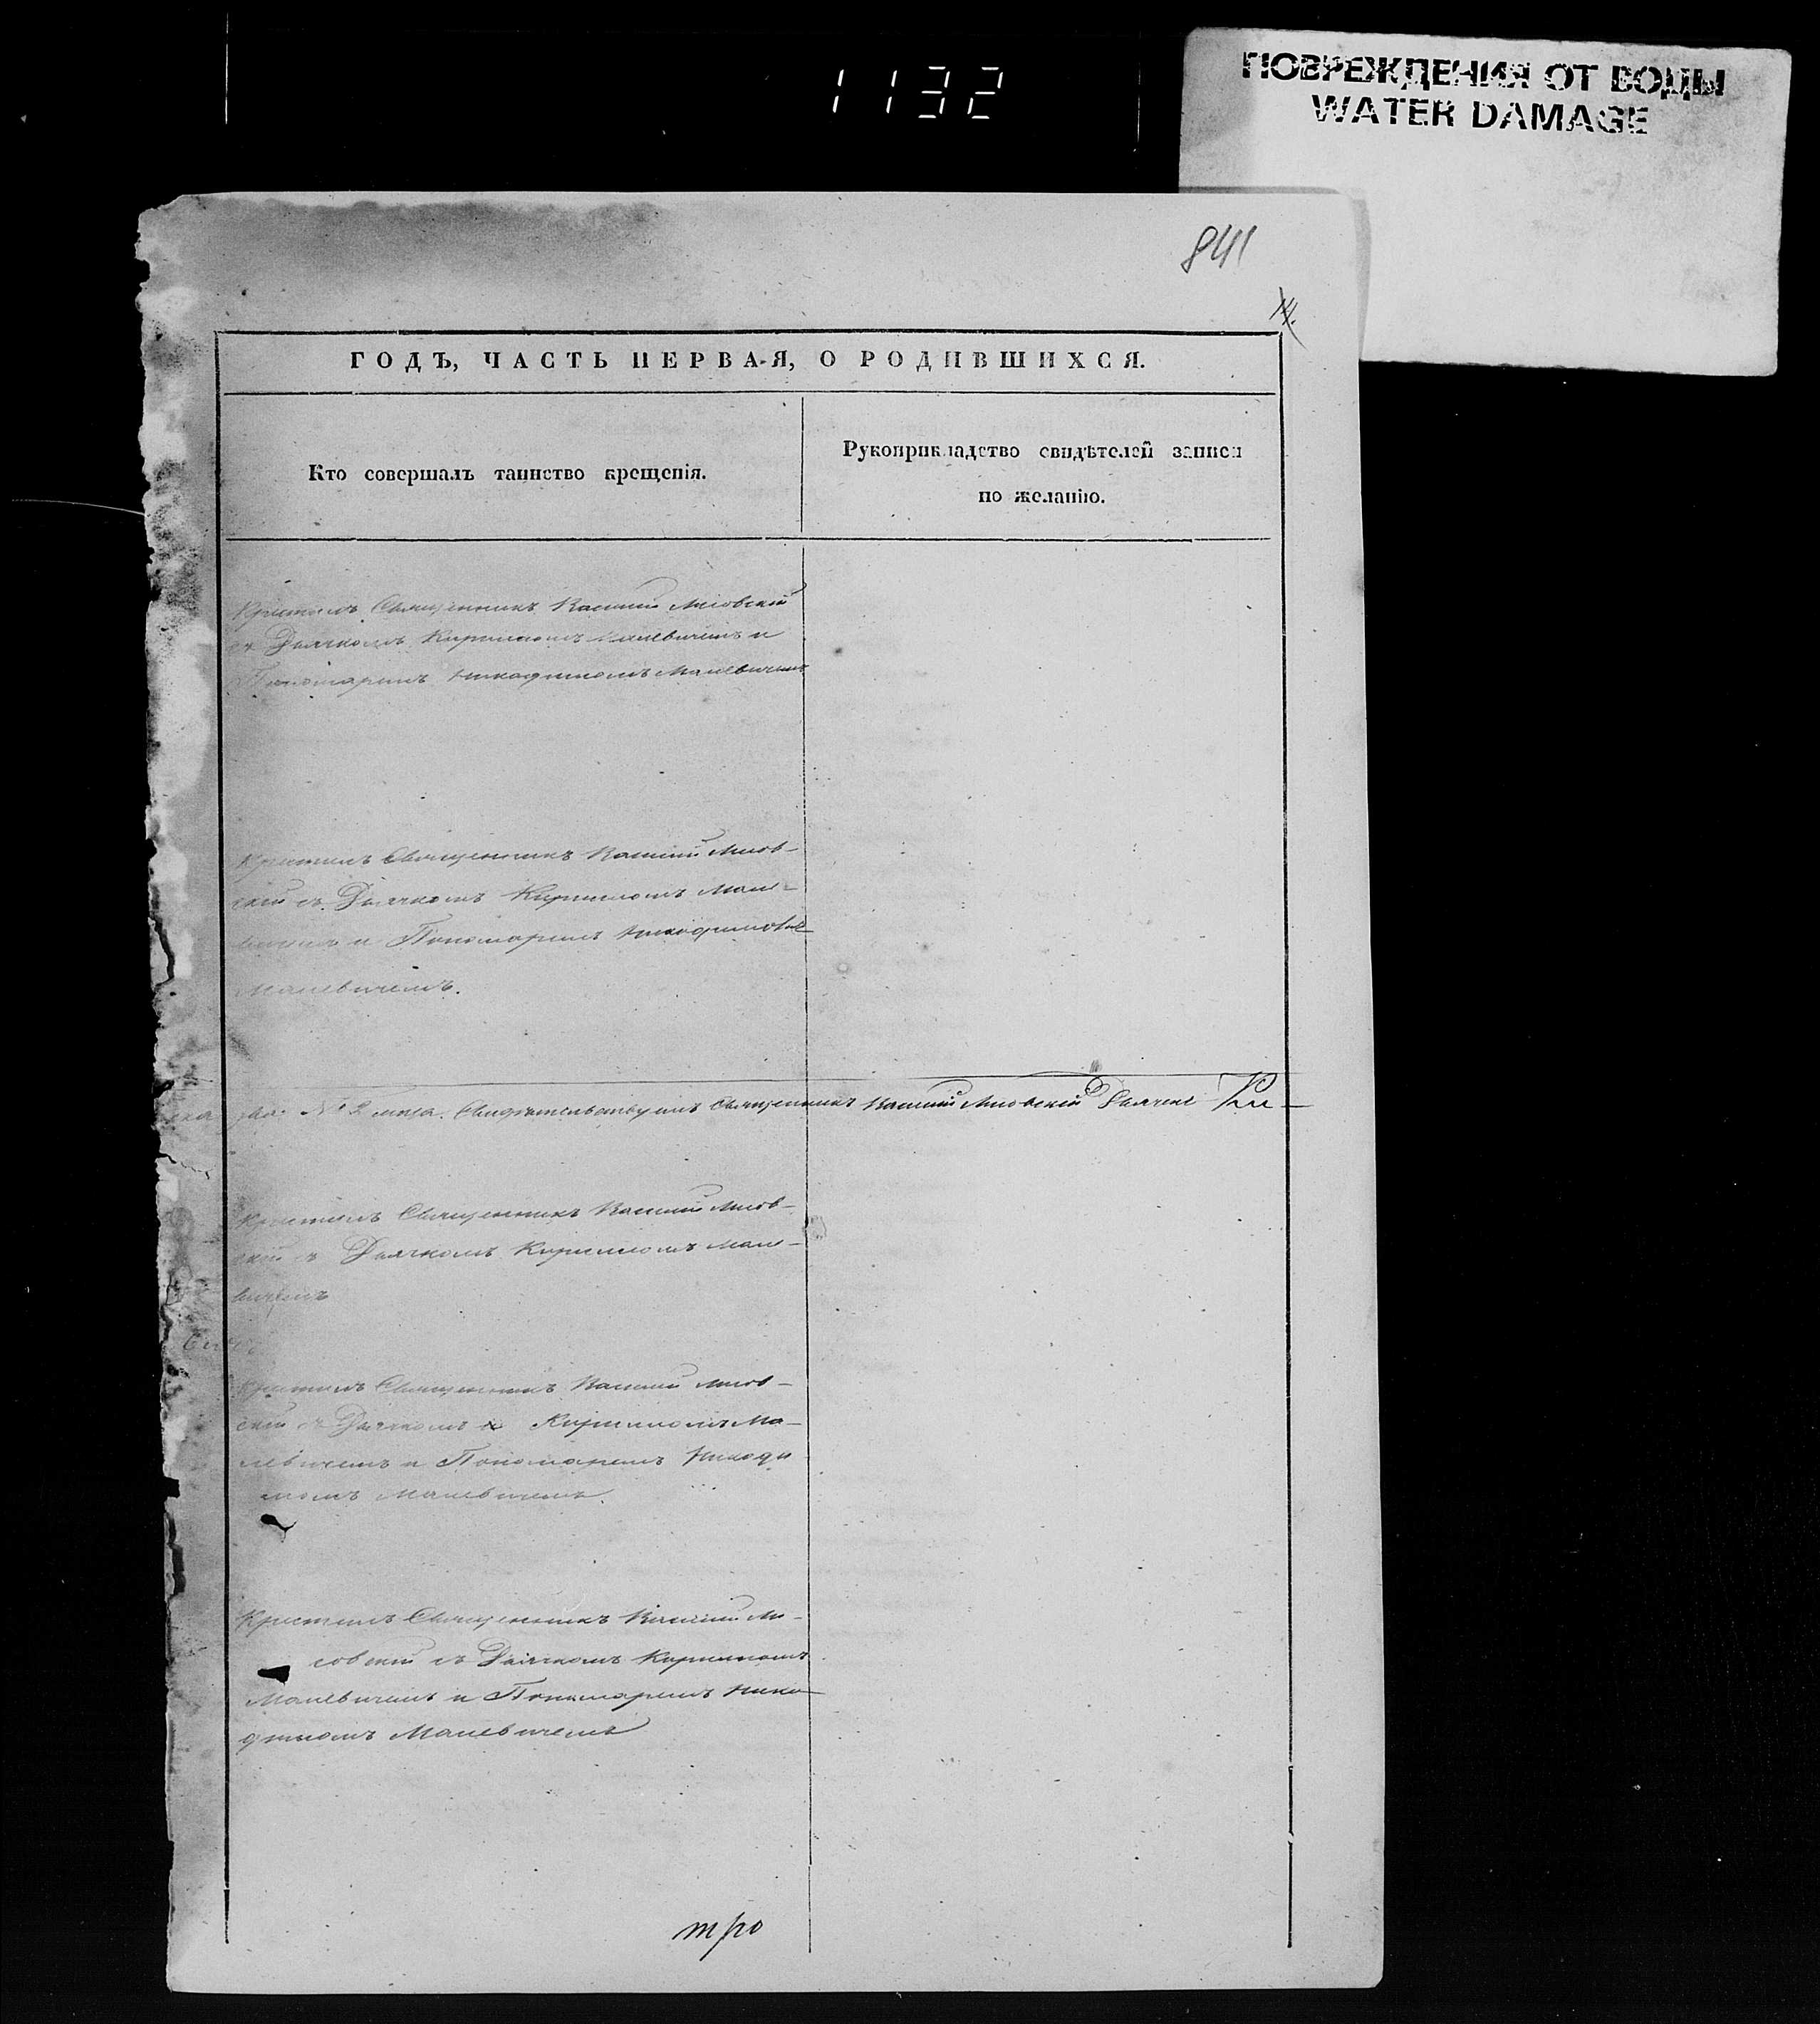 1132
ПОВРЕЖДЕНИЯ ОТ ВОДЫ
WATER DAMAGE
841
14.
ГОДЪ, ЧАСТЬ ПЕРВАЯ, О РОДИВШИХСЯ.
Кто совершалъ таинство крещенія.
Рукоприкладство свидѣтелей записи
по желанію.
Крестилъ Священникъ Василій Лисовскій
съ Дьячкомъ Кирилломъ Малевичемъ и
Пономаремъ Никодимомъ Малевичемъ
Крестилъ Священникъ Василій Лисов-
скій съ Дьячкомъ Кирилломъ Мале-
вичемъ и Пономаремъ Никодимомъ
Малевичемъ.
№ 2 Свидѣтельствуемъ Священникъ Василій Лисовскій Дьячекъ Ки-
Крестилъ Священникъ Василій Лисов-
скій съ Дьячкомъ Кирилломъ Мале-
вичемъ
Крестилъ Священникъ Василій Лисов-
скій съ Дьячкомъ Кирилломъ Ма-
левичемъ и Пономаремъ Никоди
момъ Малевичемъ.
Крестилъ Священникъ Василій Ли-
совскій съ Дьячкомъ Кирилломъ
Малевичемъ и Пономаремъ Нико-
димомъ Малевичемъ
тро